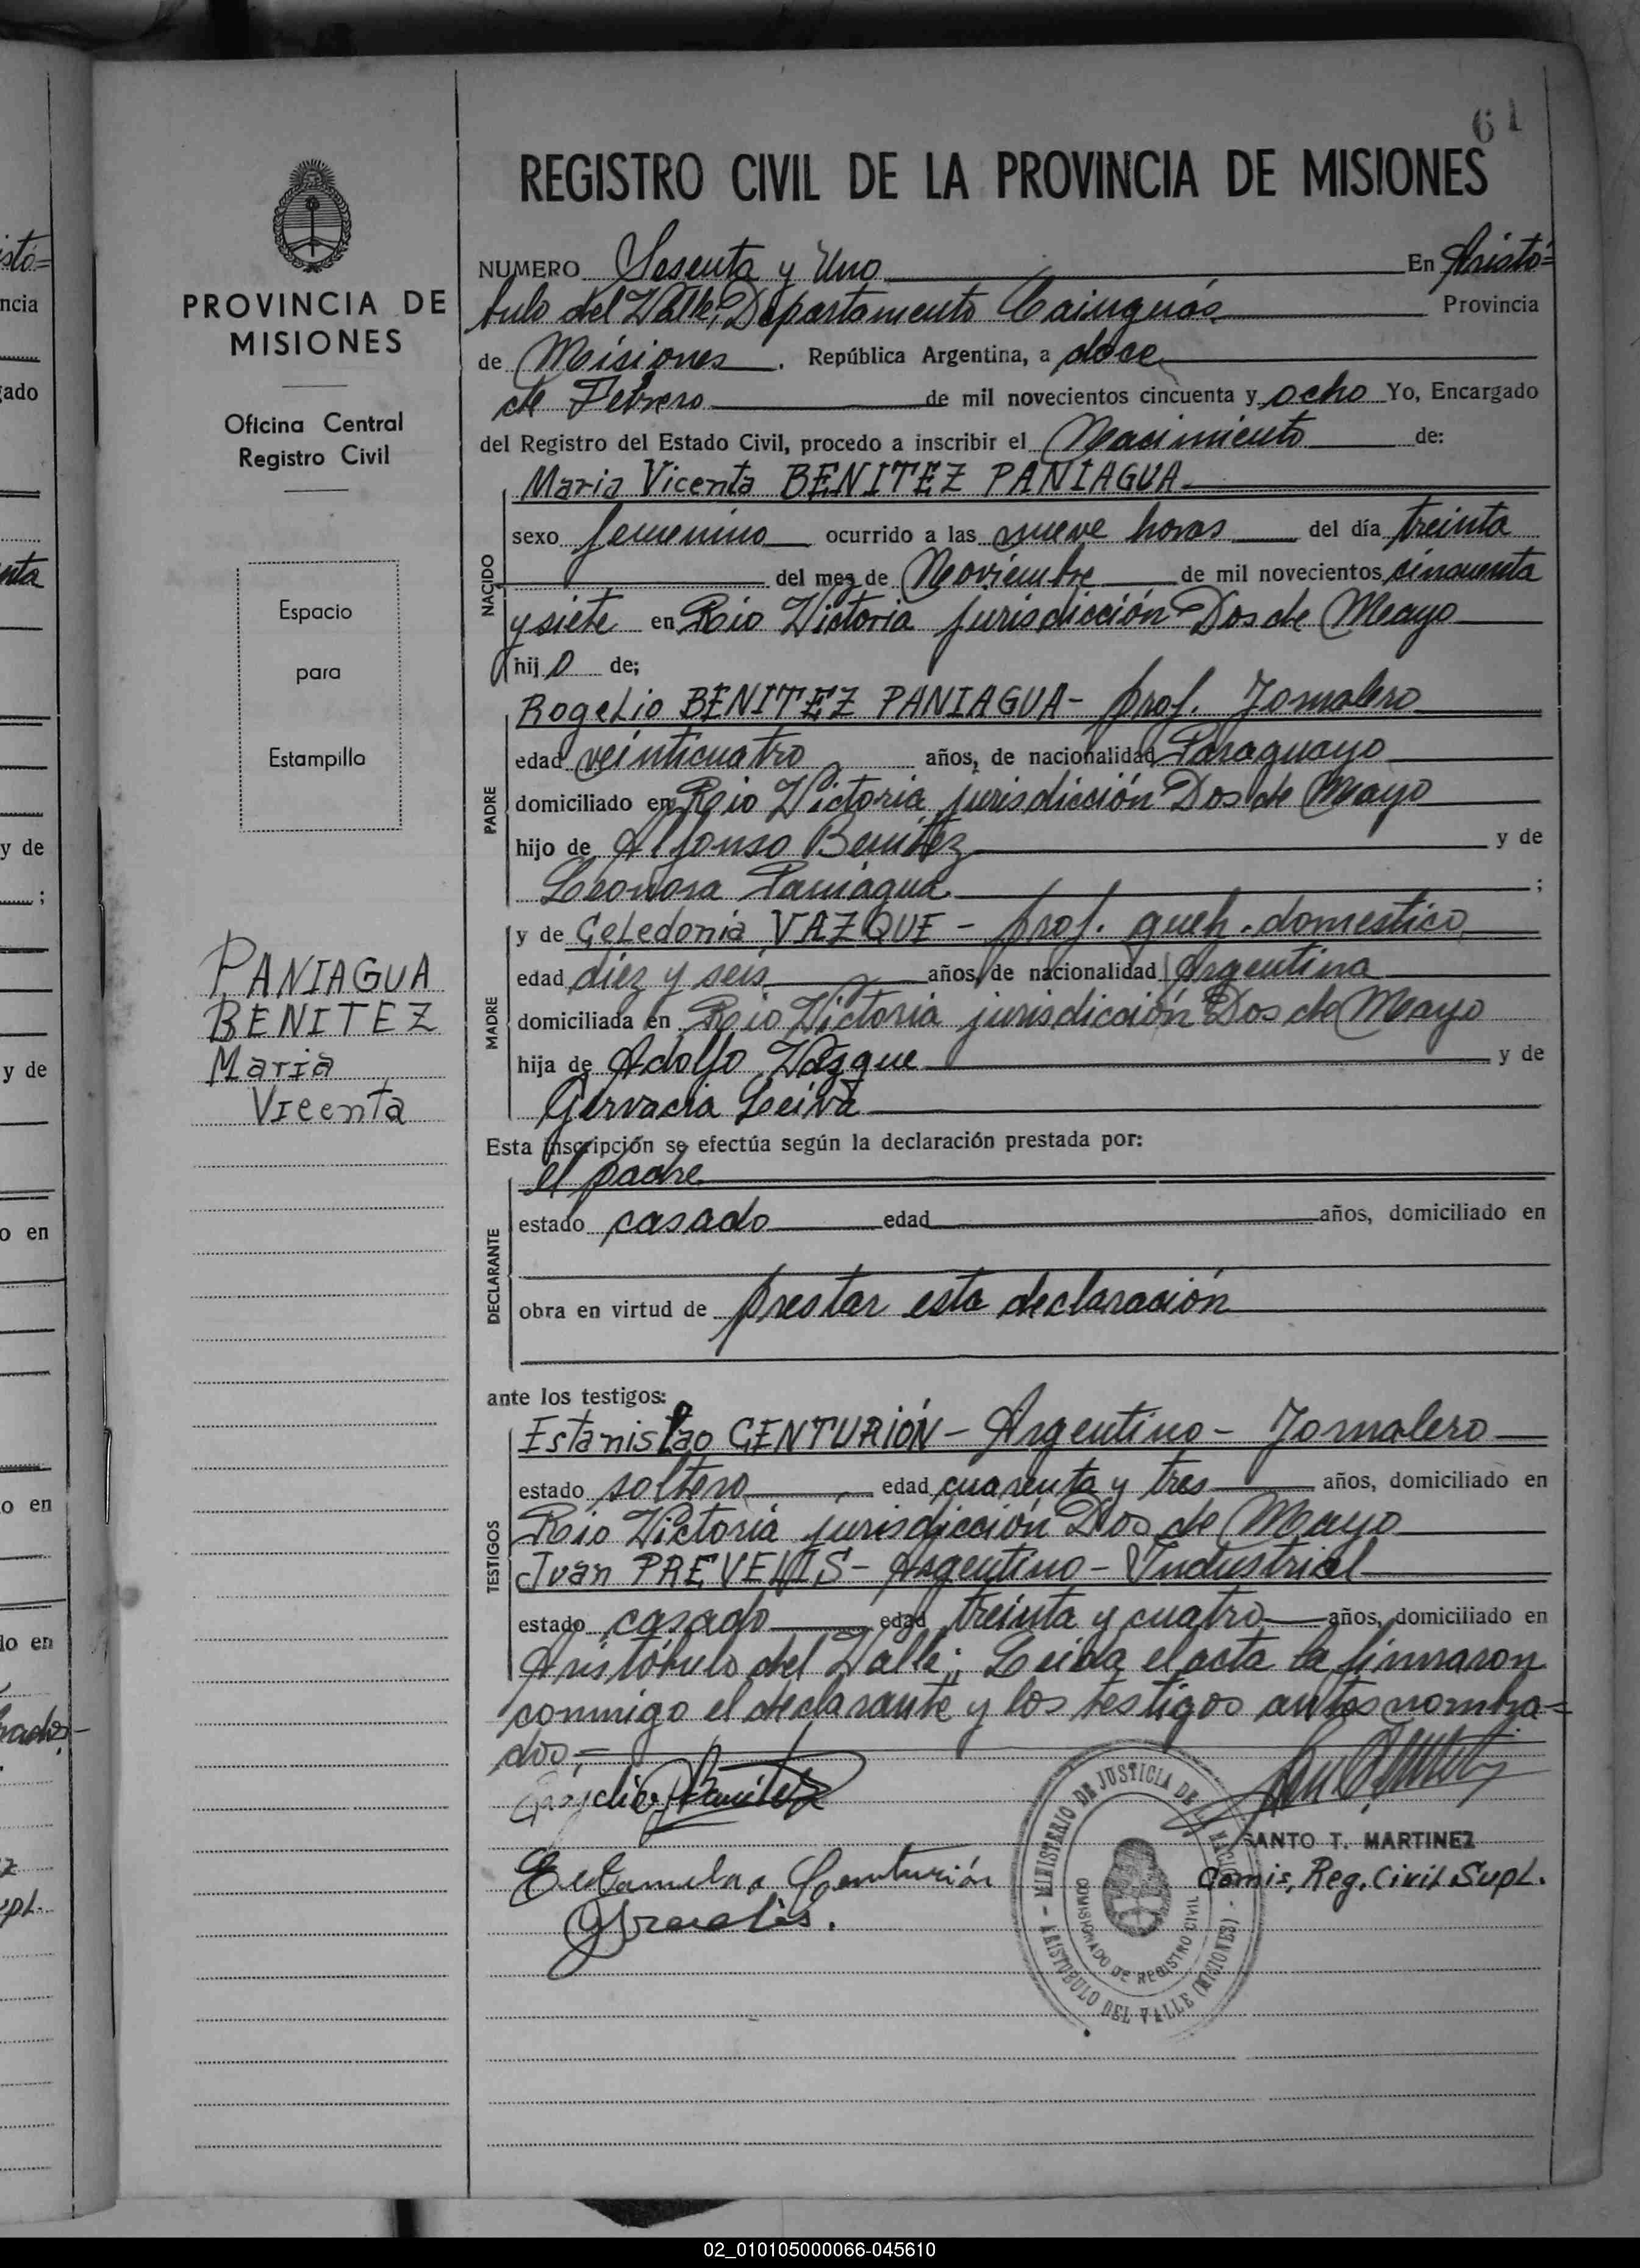 61
REGISTRO CIVIL DE LA PROVINCIA DE MISIONES
PROVINCIA DE
MISIONES
Oficina Central
Registro Civil
Espacio
para
Estampilla
PANIAGUA
BENITEZ
Maria
Vicenta
NUMERO Sesenta y Uno En Aristó=
bulo del Valle, Departamento Cainguás Provincia
de Misiones. República Argentina, a doce
de Febrero de mil novecientos cincuenta y ocho Yo, Encargado
del Registro del Estado Civil, procedo a inscribir el Nacimiento de:
NACIDO
Maria Vicenta BENITEZ PANIAGUA
sexo femenino ocurrido a las nueve horas del día treinta
del mes de Noviembre de mil novecientos cincuenta
y siete en Rio Victoria jurisdicción Dos de Mayo
hij a de;
PADRE
Rogelio BENITEZ PANIAGUA - prof. Jornalero
edad veinticuatro años, de nacionalidad Paraguayo
domiciliado en Rio Victoria jurisdicción Dos de Mayo
hijo de Alfonso Benitez y de
Leonora Paniagua ;
MADRE
y de Celedonia VAZQUE - prof. queh. domestico
edad diez y seis años, de nacionalidad Argentina
domiciliada en Rio Victoria jurisdicción Dos de Mayo
hija de Adolfo Vazque y de
Gervacia Leiva
Esta inscripción se efectúa según la declaración prestada por:
DECLARANTE
el padre
estado casado edad años, domiciliado en
obra en virtud de prestar esta declaración
ante los testigos:
TESTIGOS
Estanislao CENTURIÓN - Argentino - Jornalero
estado soltero edad cuarenta y tres años, domiciliado en
Rio Victoria jurisdicción Dos de Mayo
Juan - Argentino - Industrial
estado casado edad treinta y cuatro años, domiciliado en
Aristóbulo del Valle; Leida el acta la firmaron
conmigo el declarante y los testigos antes nombra=
dos.=
Benitez
Centurión
SANTO T. MARTINEZ
Comis. Reg. Civil Supl.
MINISTERIO DE JUSTICIA DE LA NACION
COMISIONADO DE REGISTRO CIVIL
ARISTOBULO DEL VALLE (MISIONES)
istó=
ncia
gado
nta
y de
;
y de
o en
o en
lo en
pl.
02_010105000066-045610